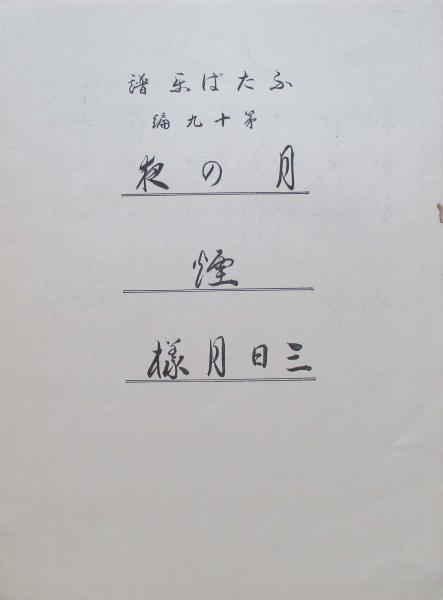 ふたば楽譜
第十九編
月の夜
煙
三日月様